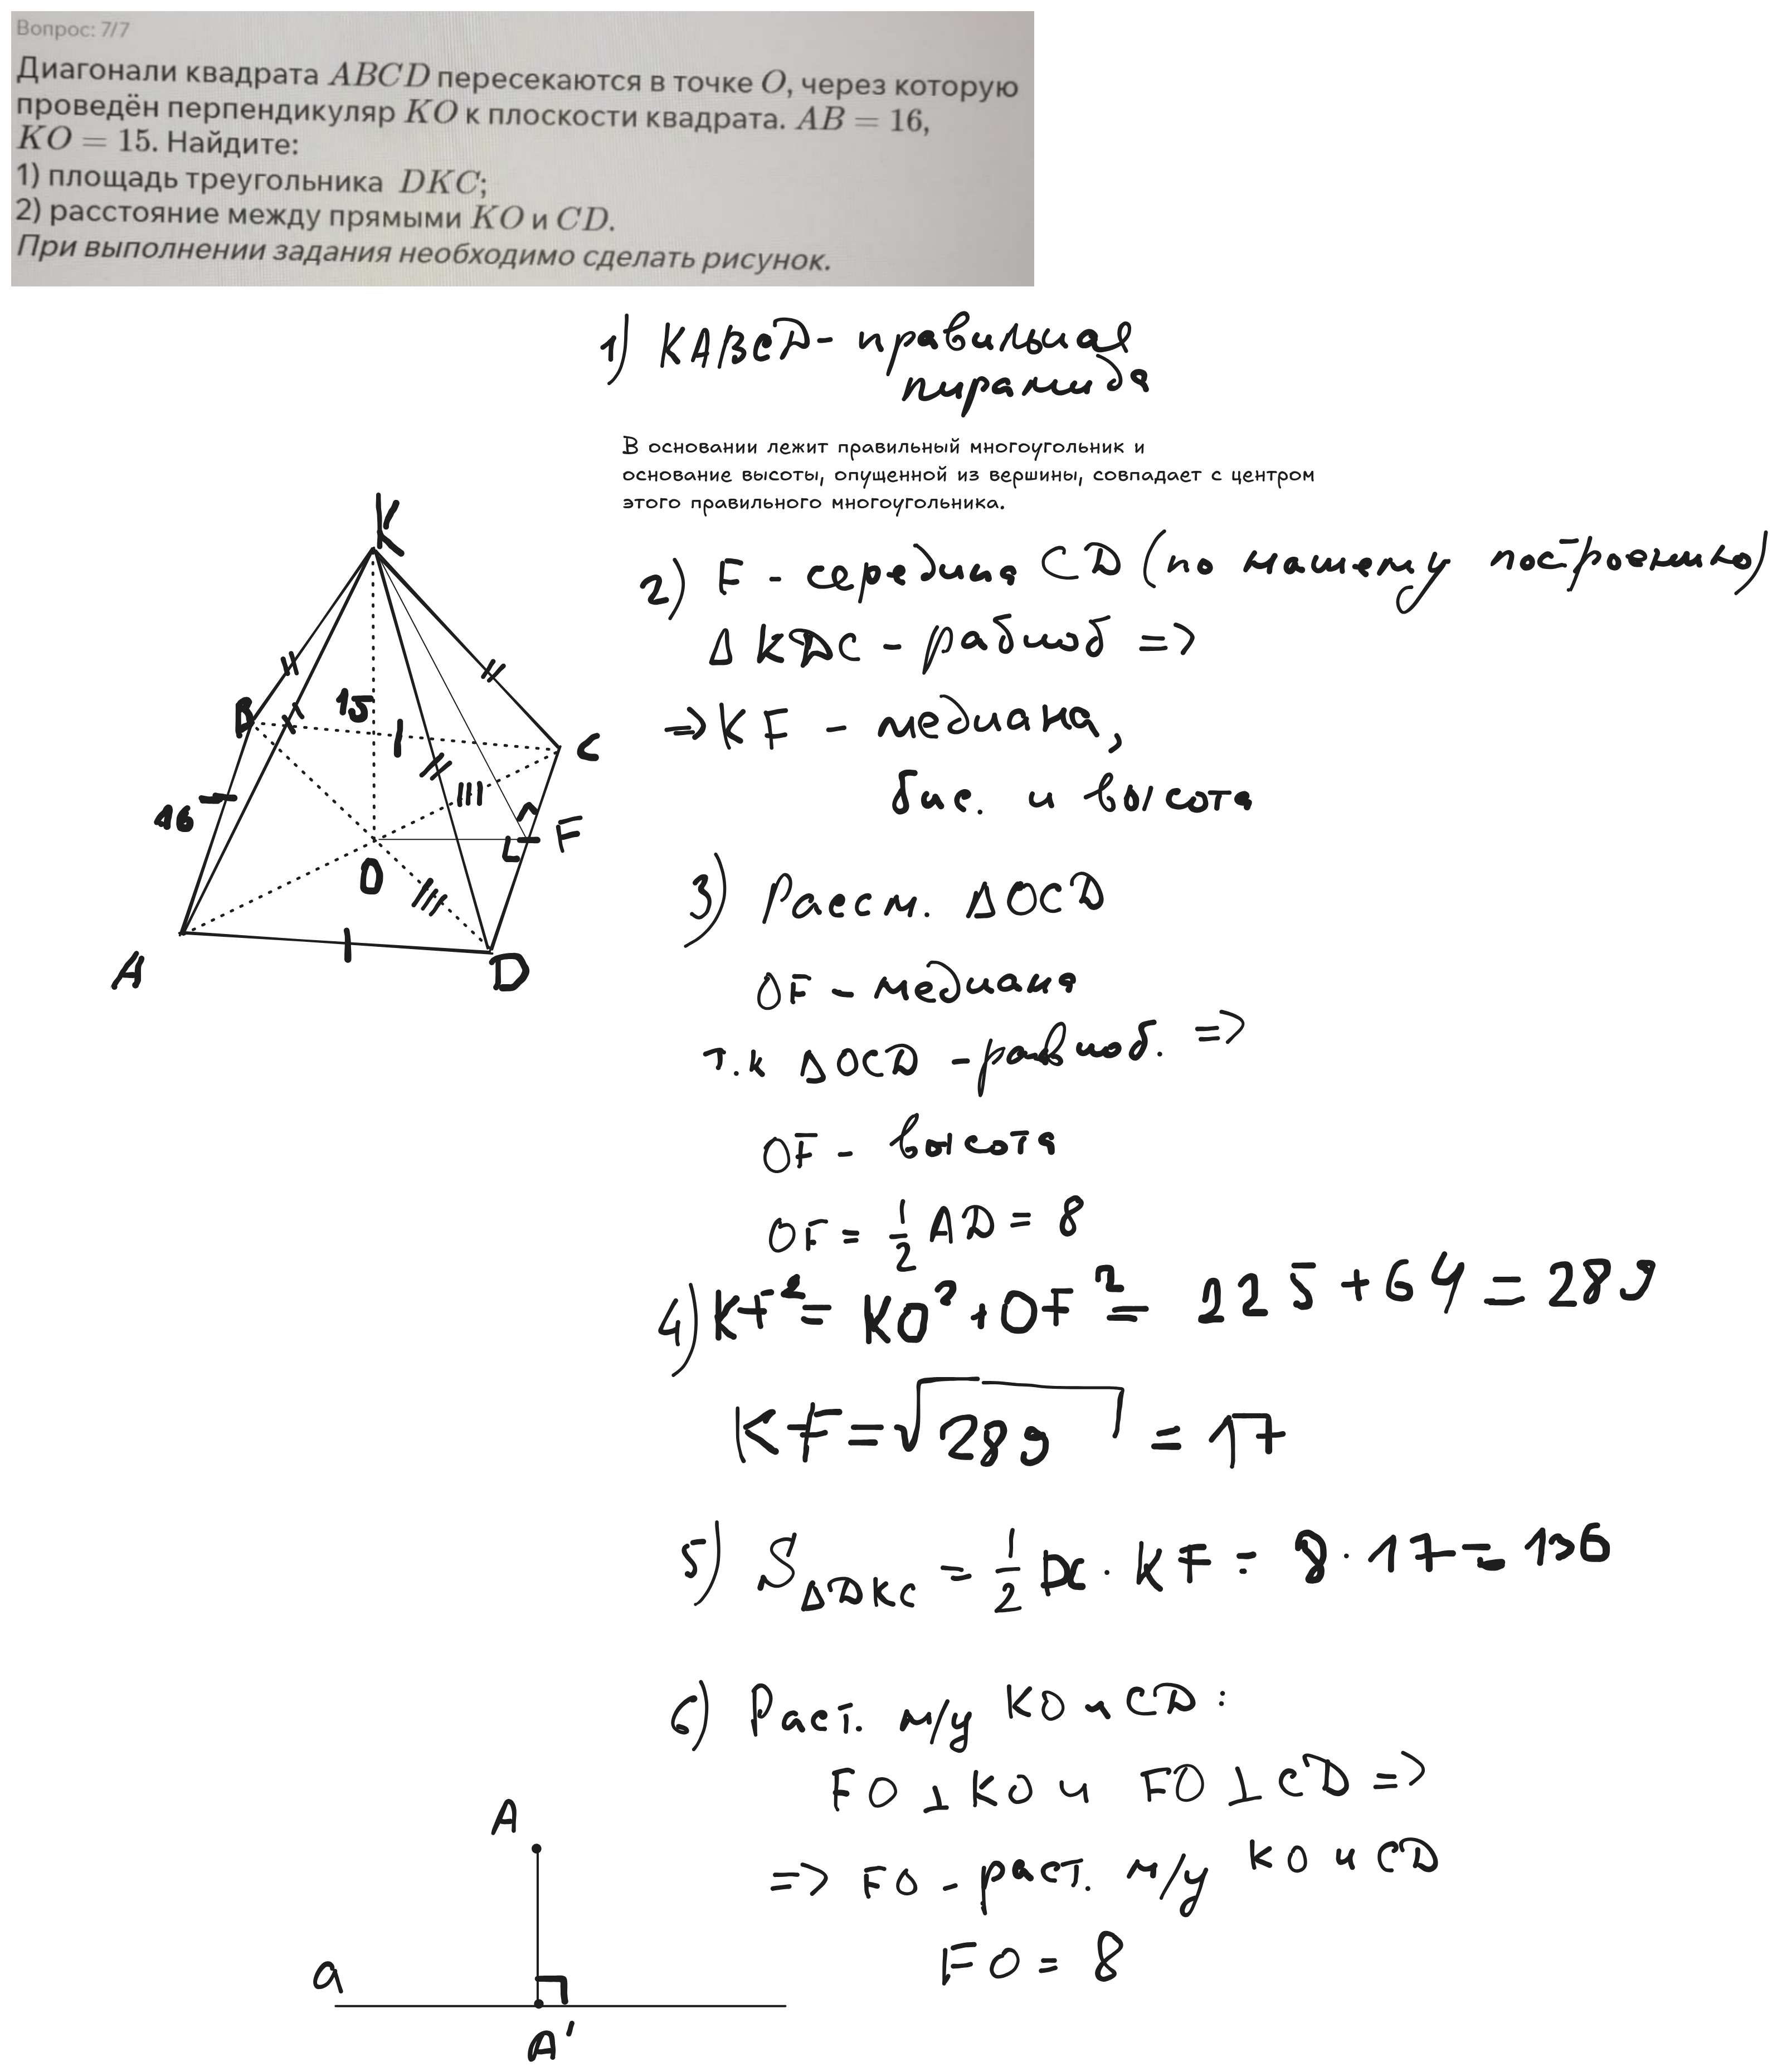 Вопрос: 7/7
Диагонали квадрата ABCD пересекаются в точке O, через которую
проведён перпендикуляр KO к плоскости квадрата. AB = 16,
KO = 15. Найдите:
1) площадь треугольника DKC;
2) расстояние между прямыми KO и CD.
При выполнении задания необходимо сделать рисунок.
1) KABCD - правильная
пирамида
В основании лежит правильный многоугольник и
основание высоты, опущенной из вершины, совпадает с центром
этого правильного многоугольника.
K
B
15
C
16
F
O
A
D
2) F - середина CD (по нашему построению)
Δ KDC - равноб =>
=> KF - медиана,
бис. и высота
3) Рассм. ΔOCD
OF - медиана
т.к ΔOCD - равноб. =>
OF - высота
OF = 1/2 AD = 8
4) KF² = KO² + OF² = 225 + 64 = 289
KF = √289 = 17
5) S ΔDKC = 1/2 DC · KF = 8 · 17 = 136
6) Раст. м/у KO и CD :
FO ⊥ KO и FO ⊥ CD =>
=> FO - раст. м/у KO и CD
FO = 8
A
a
A'